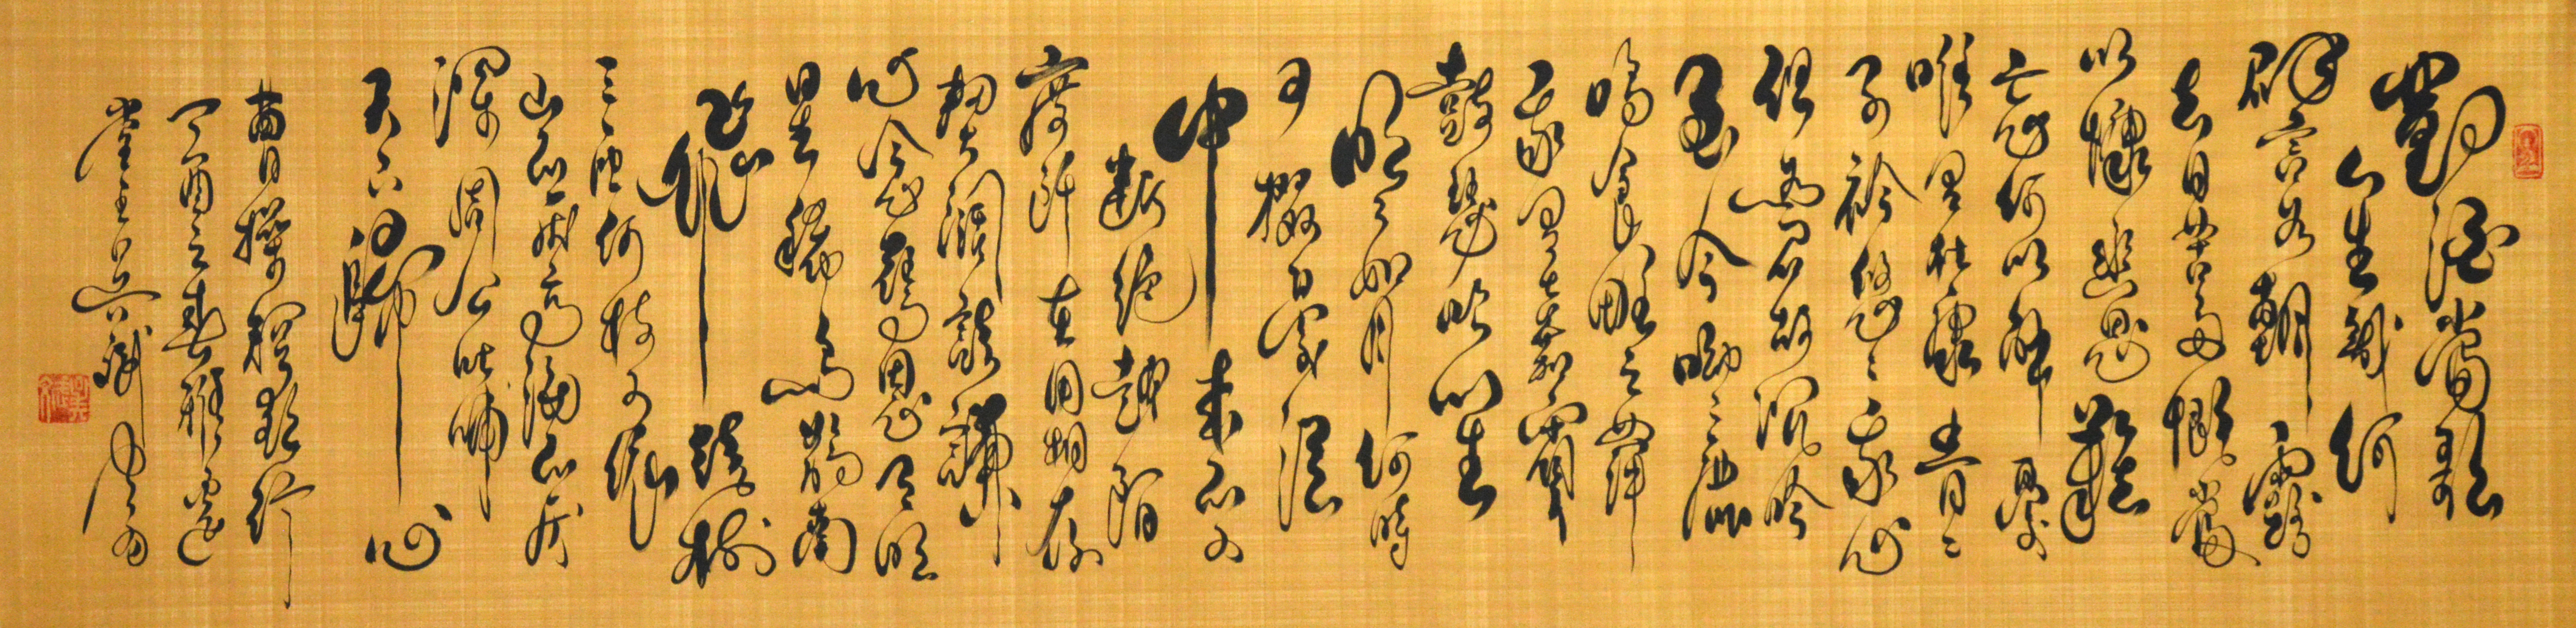 對酒當歌
人生幾何
譬如朝露
去日苦多慨當
以慷幽思難
忘何以解憂
唯有杜康青々
子衿悠々我心
但為君故沉吟
至今呦々鹿
鳴食野之苹
我有嘉賓
鼓瑟吹笙
明々如月何時
可掇憂從
中來不可
斷絕越陌
度阡枉用相存
契闊談讌
心念舊恩月明
星稀烏鵲南
飛繞樹
三匝何枝可依
山不厭高海不厭
深周公吐哺
天下歸心
曹操短歌行
丁酉之春雅蓮
堂主